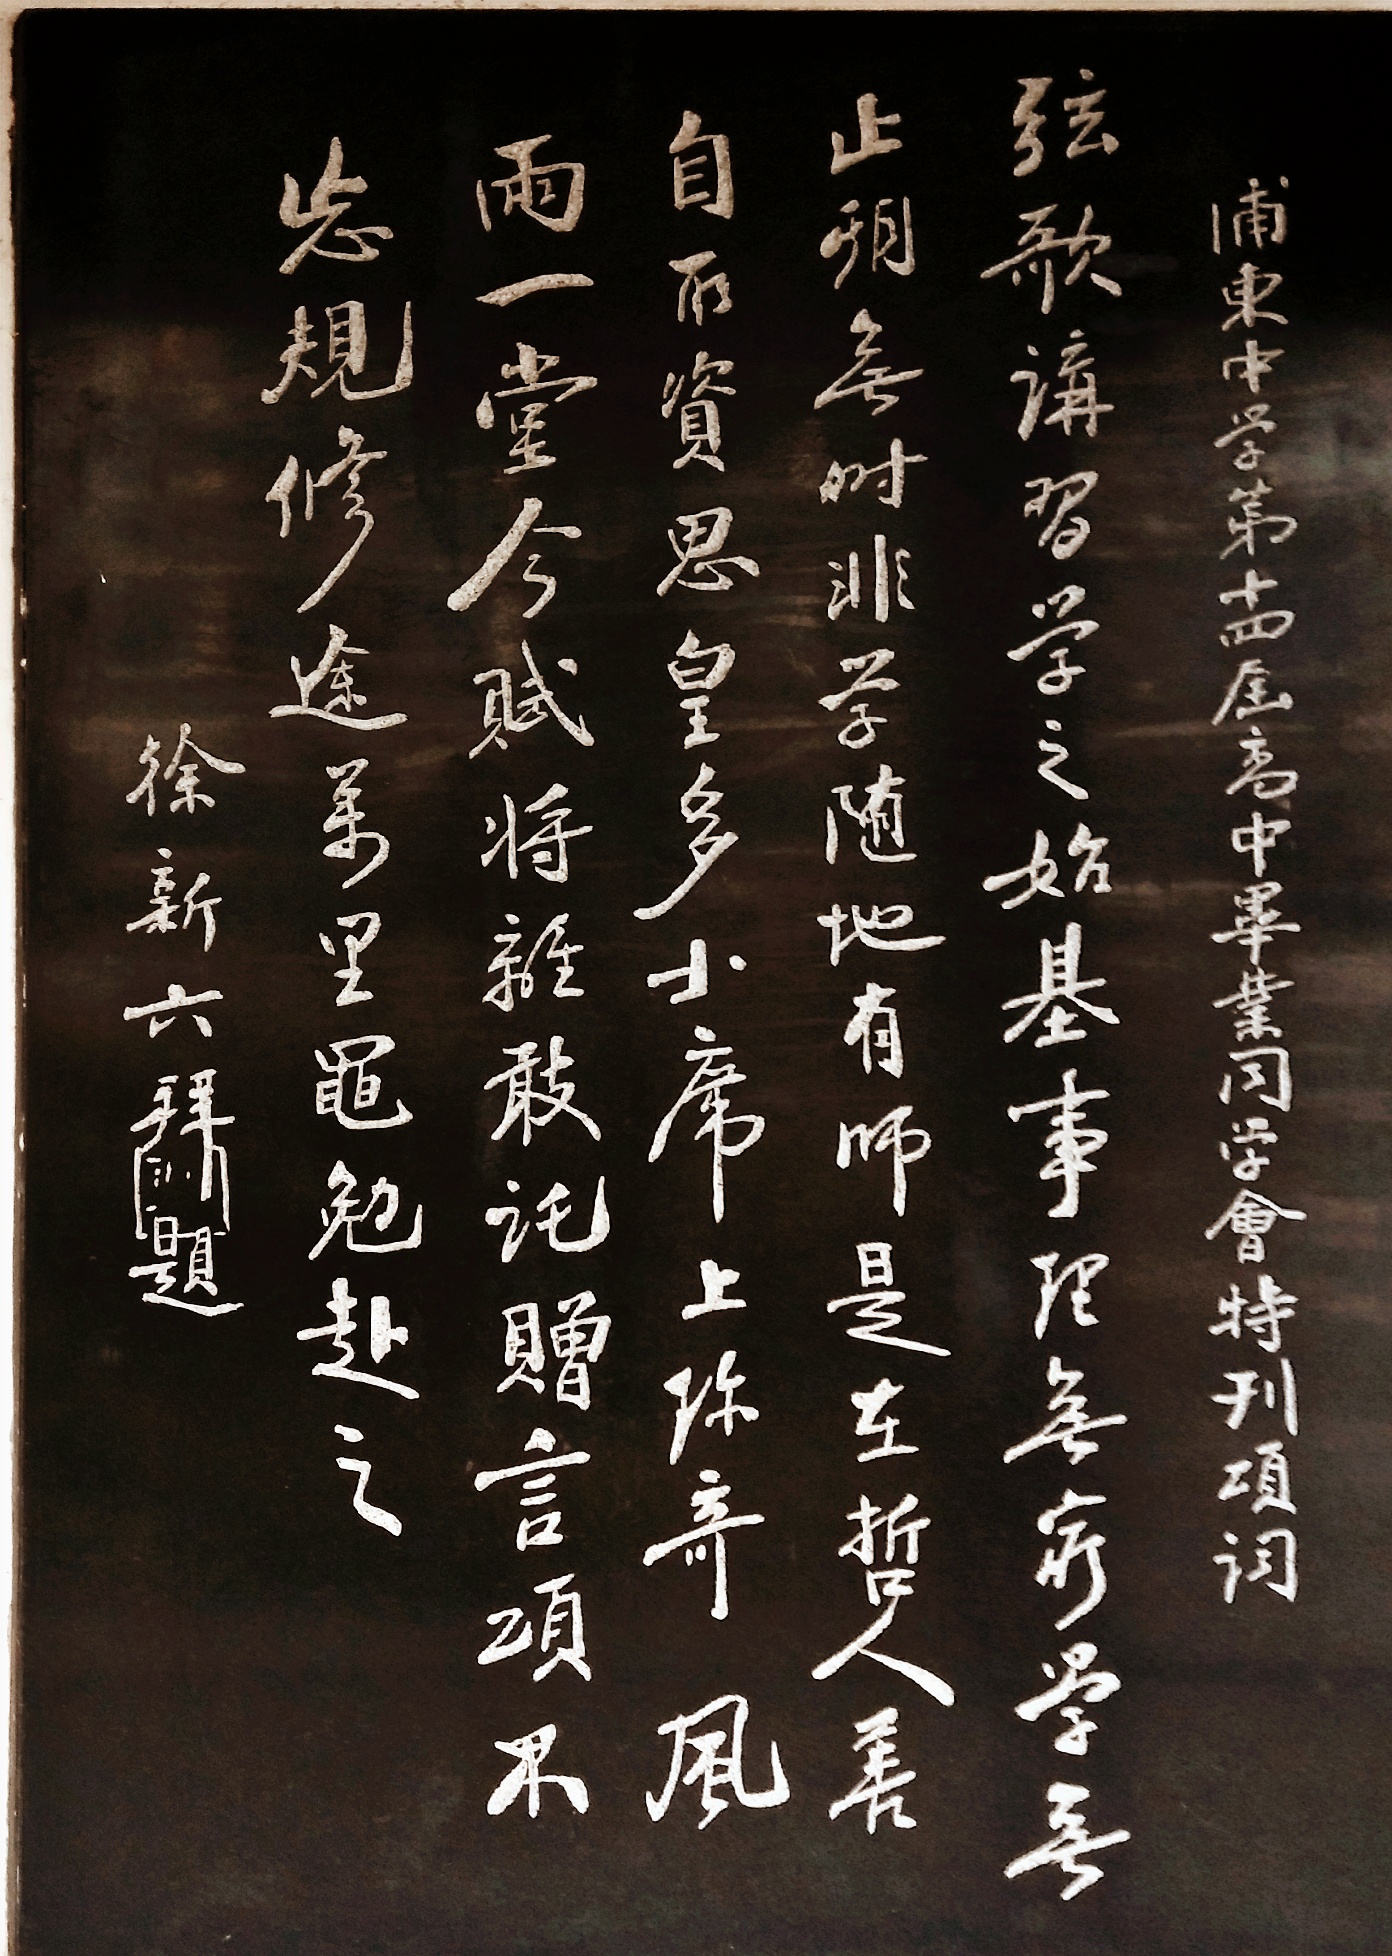 浦東中学第十四届高中畢業同学會特刊頌詞
弦歌講習学之始基事理無窮學無
止期無时非学随地有师是在哲人善
自取資思皇多士席上珎奇風
雨一堂今賦将離敢託贈言頌不
忘規修途萬里黽勉赴之
徐新六拜題